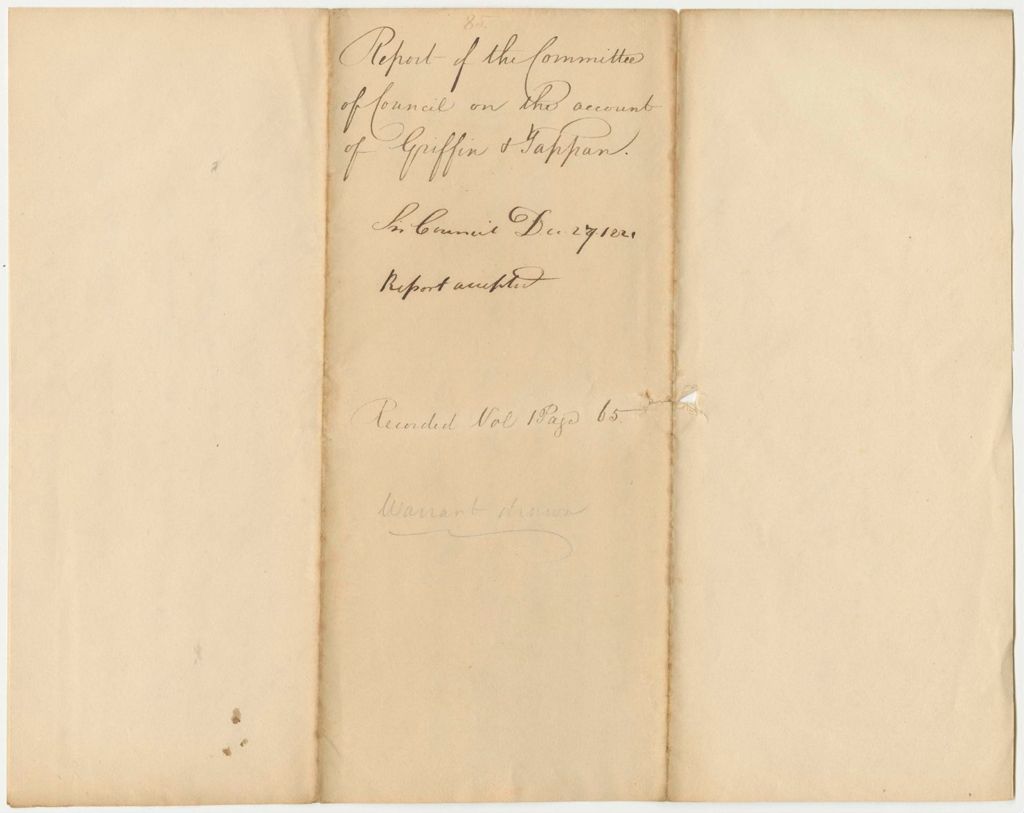 85.
Report of the Committee
of Council on the account
of Griffin & Tappan.
In Council Dec 27 1821
Report accepted
Recorded Vol 1 Page 65
Warrant drawn